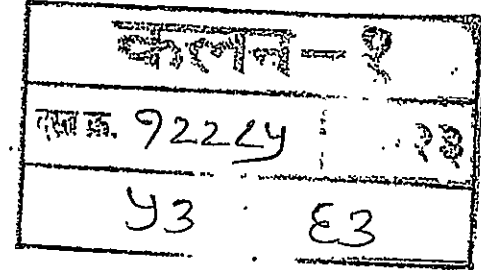 कलन-१
दस्त क्र. १२२८५ २३
५३ ६३